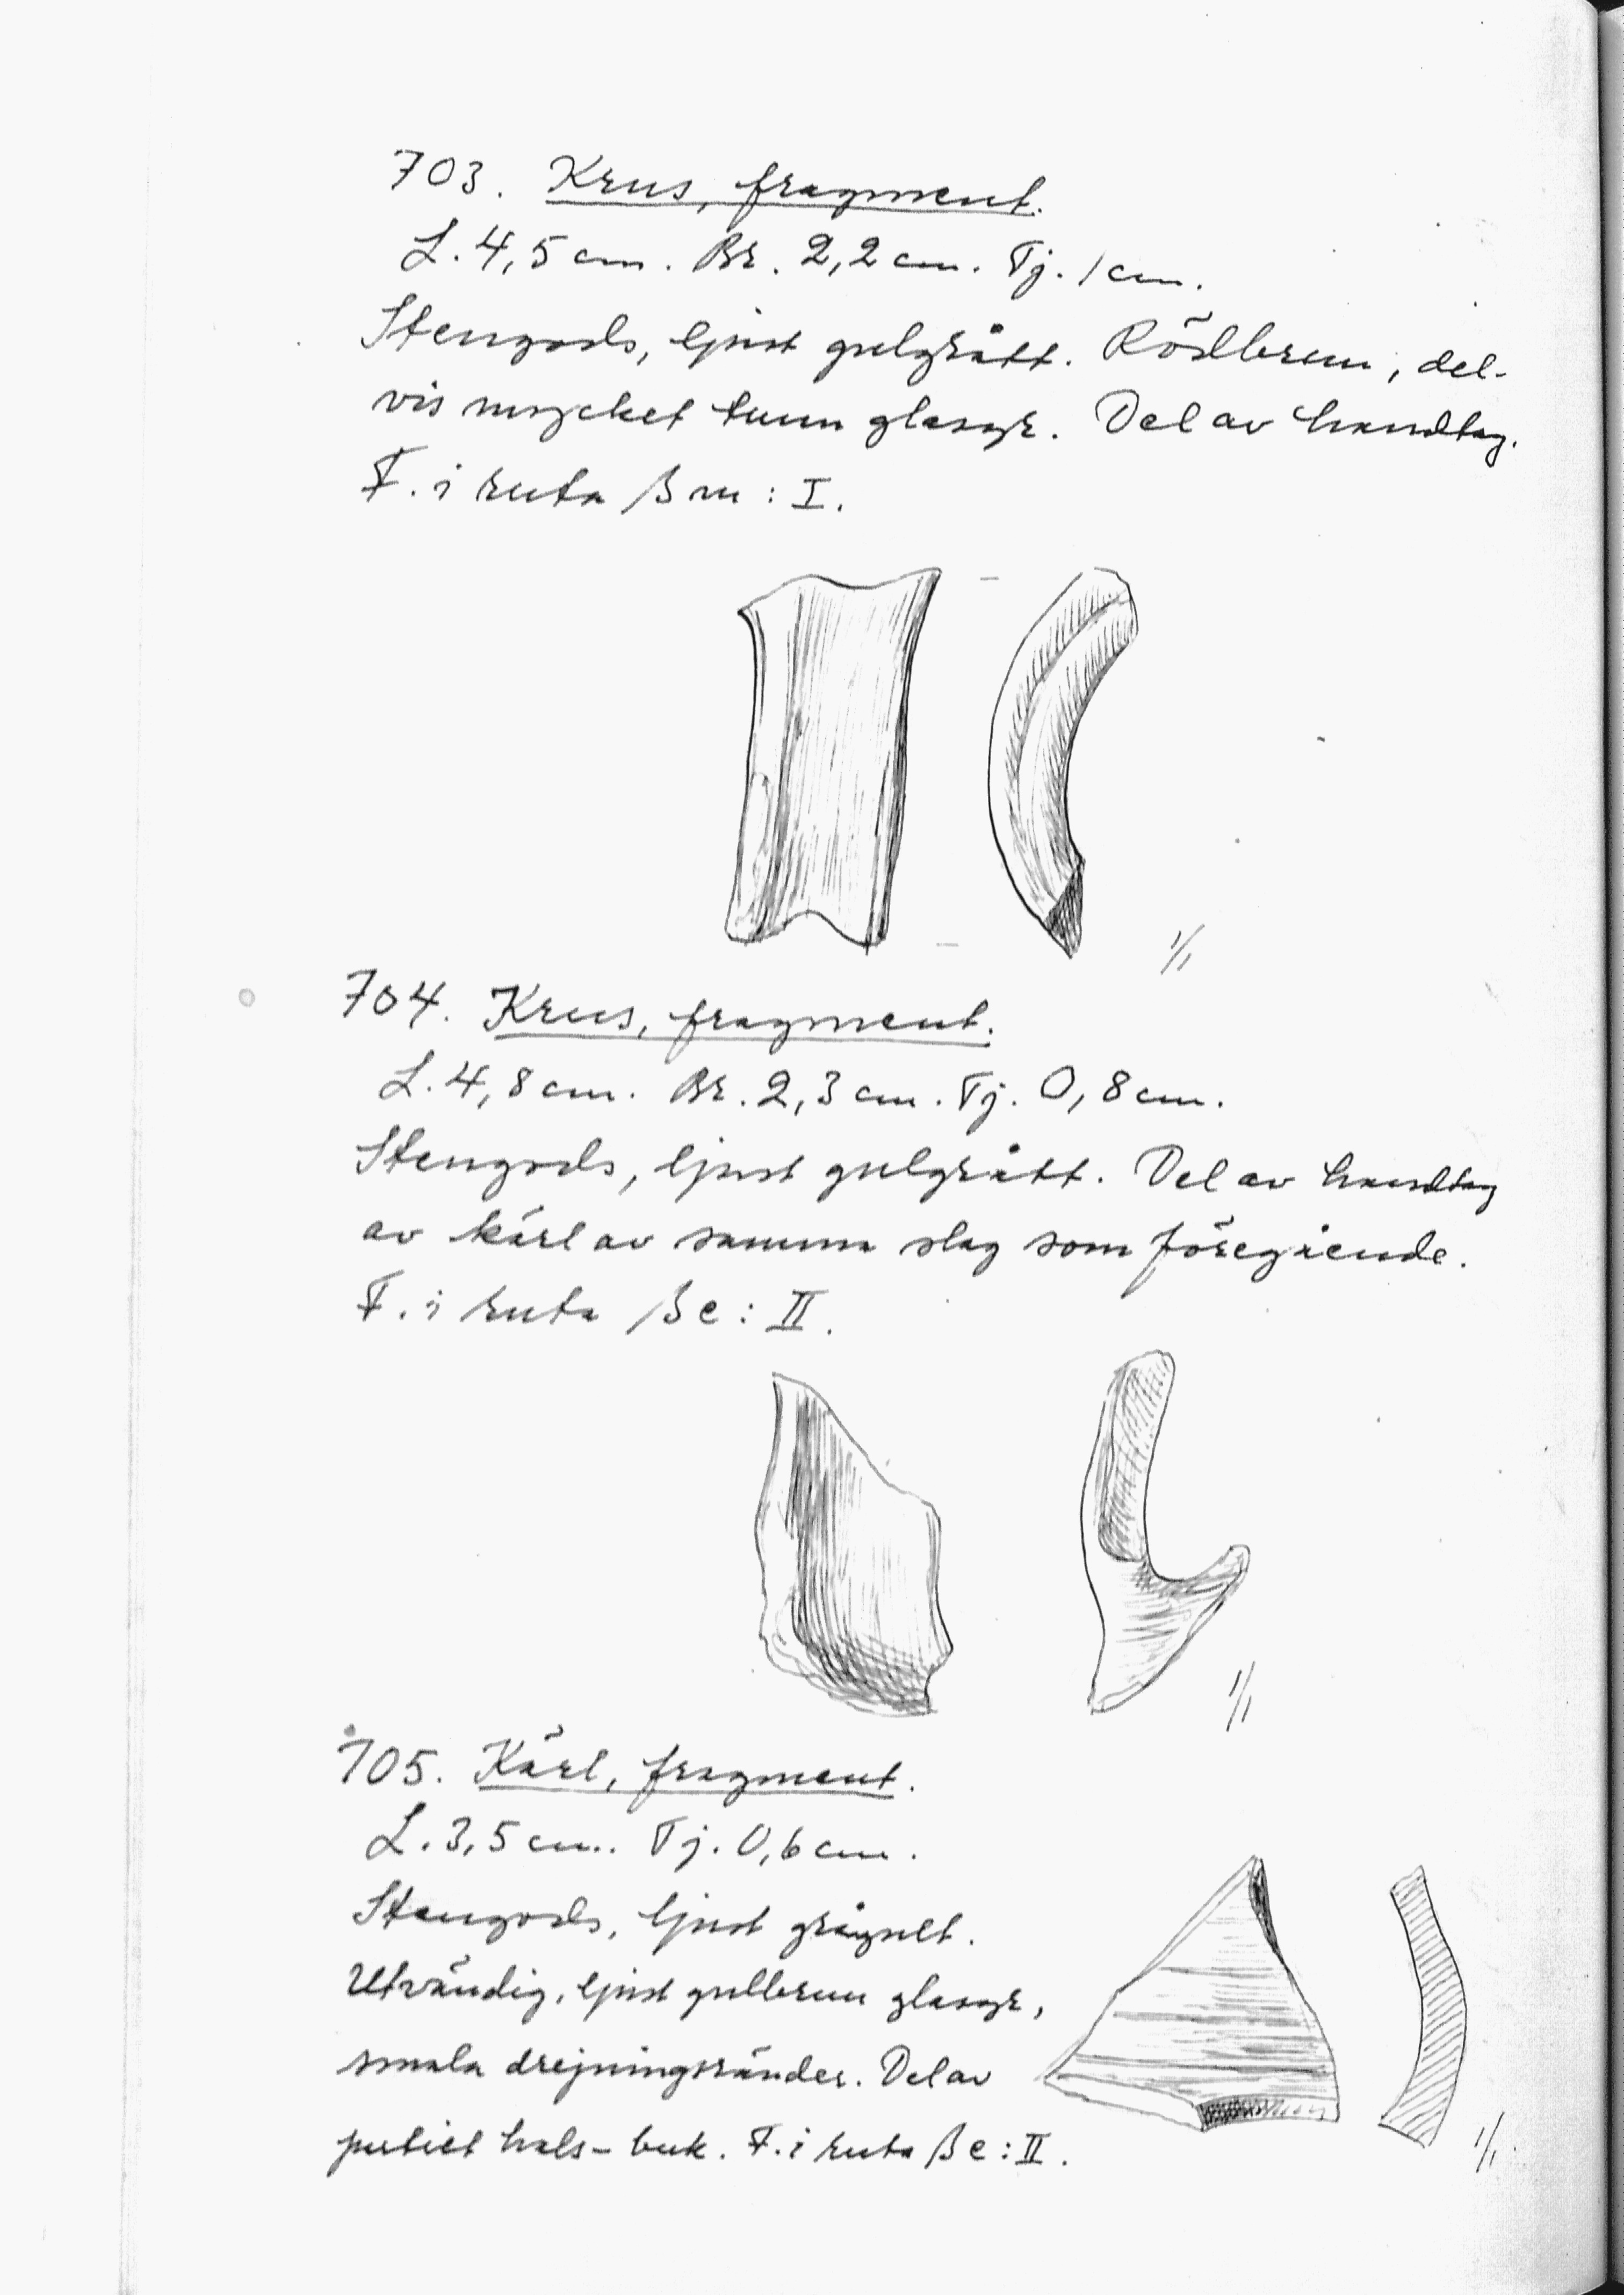 703. Krus, fragment.
L. 4,5 cm. Br. 2,2 cm. Tj. 1 cm.
Stengods, ljust gulgrått. Rödbrun, del-
vis mycket tunn glasyr. Del av handtag.
F. i ruta βm : I.
1/1
704. Krus, fragment.
L. 4,8 cm. Br. 2,3 cm. Tj. 0,8 cm.
Stengods, ljust gulgrått. Del av handtag
av kärl av samma slag som föregående.
F. i ruta βe : II.
1/1
705. Kärl, fragment.
L. 3,5 cm. Tj. 0,6 cm.
Stengods, ljust grågult.
Utvändig, ljust gulbrun glasyr,
smala drejningsränder. Del av
partiet hals - buk. F. i ruta βe : II.
1/1